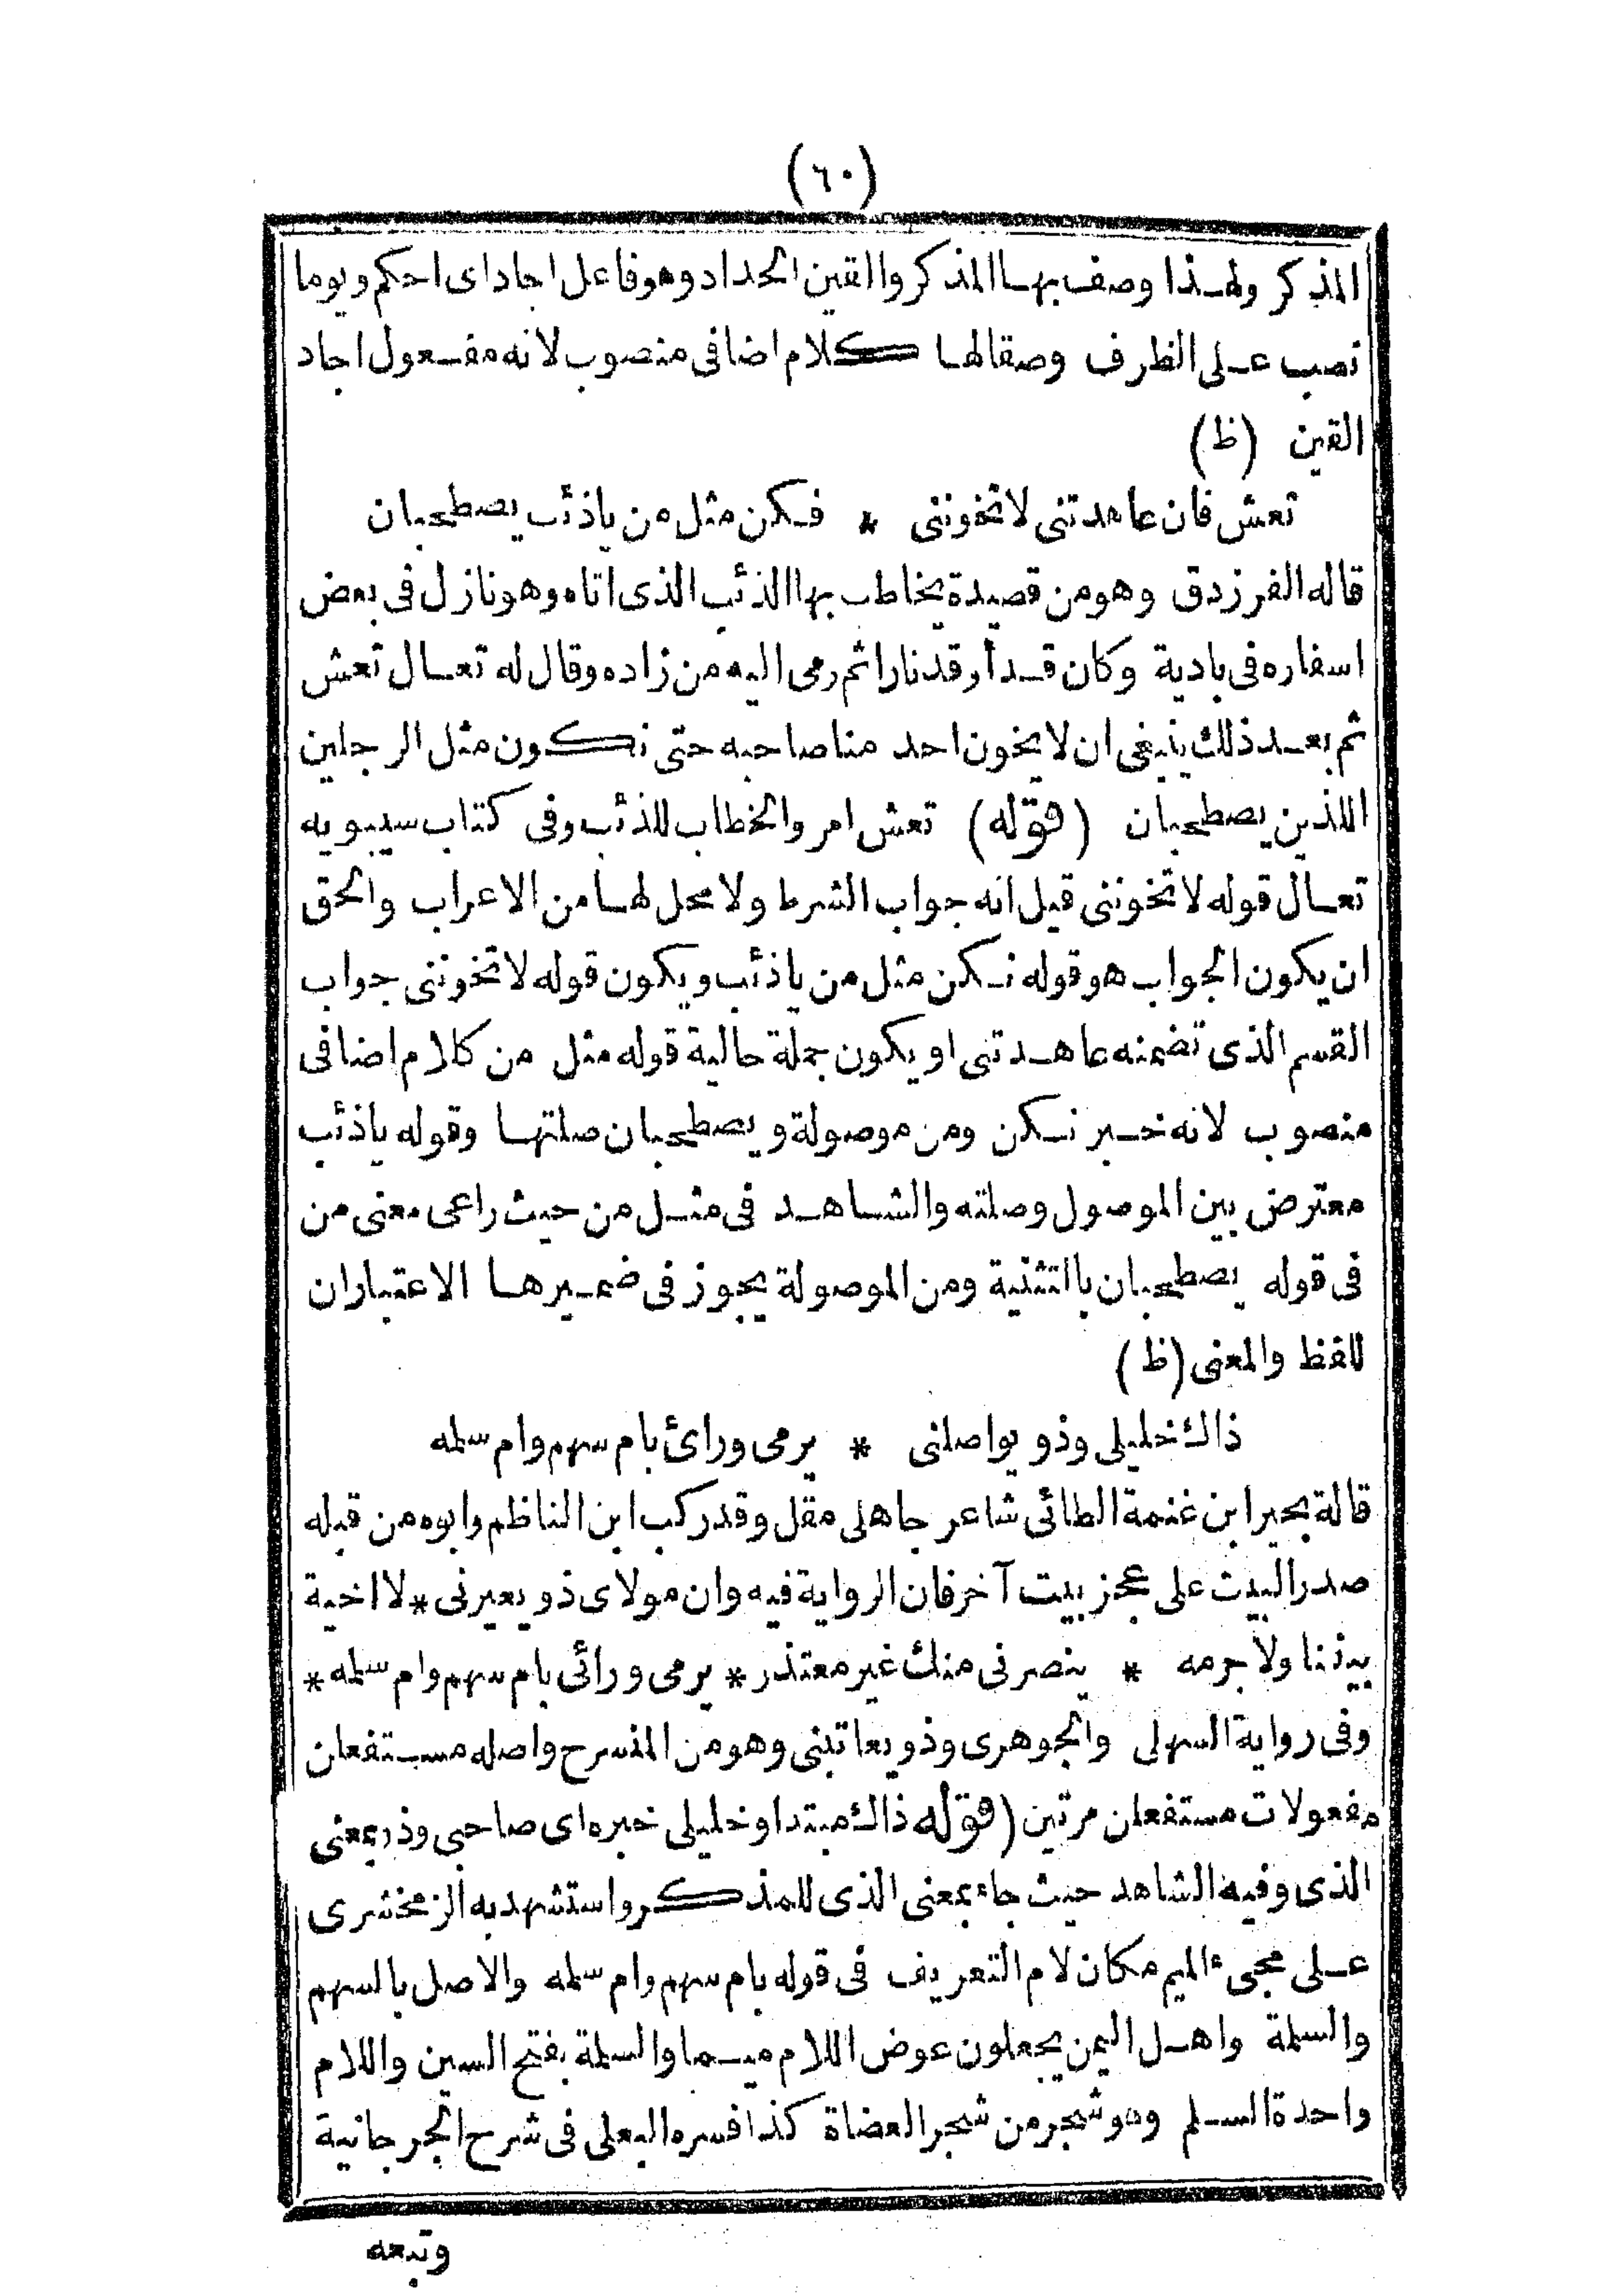 (٦٠)
المذكر ولهذا وصف بها المذكر والقين الحداد وهو فاعل اجاد اى احكم ويوما
نصب على الظرف وصقالها كلام اضافى منصوب لانه مفعول اجاد
القين (ظ)
تعش فان عاهدتنى لا تخوننى * فكن مثل من ياذئب يصطحبان
قاله الفرزدق وهو من قصيدة يخاطب بها الذئب الذى اتاه وهو نازل فى بعض
اسفاره فى بادية وكان قد أوقد نارا ثم رمى اليه من زاده وقال له تعال تعش
ثم بعد ذلك ينبغى ان لا يخون احد منا صاحبه حتى نكون مثل الرجلين
اللذين يصطحبان (قوله) تعش امر والخطاب للذئب وفى كتاب سيبويه
تعال قوله لا تخوننى قيل انه جواب الشرط ولا محل لها من الاعراب والحق
ان يكون الجواب هو قوله نكن مثل من ياذئب ويكون قوله لا تخوننى جواب
القسم الذى تضمنه عاهدتنى او يكون جملة حالية قوله مثل من كلام اضافى
منصوب لانه خبر نكن ومن موصولة ويصطحبان صلتها وقوله ياذئب
معترض بين الموصول وصلته والشاهد فى مثل من حيث راعى معنى من
فى قوله يصطحبان بالتثنية ومن الموصولة يجوز فى ضميرها الاعتباران
للفظ والمعنى (ظ)
ذاك خليلى وذو يواصلنى * يرمى ورائ بام سهم وام سلمه
قالة بحير ابن غنمة الطائى شاعر جاهلى مقل وقد ركب ابن الناظم وابوه من قبله
صدر البيت على عجز بيت آخر فان الرواية فيه وان مولاى ذو يعيرنى * لا اخية
بيننا ولا جرمه * ينصرنى منك غير معتذر * يرمى ورائى بام سهم وام سلمه *
وفى رواية السهلى والجوهرى وذو يعاتبنى وهو من المنسرح واصله مستفعلن
مفعولات مستفعلن مرتين (قوله ذاك مبتدا وخليلى خبره اى صاحبى وذو بمعنى
الذى وفيه الشاهد حيث جاء بمعنى الذى للمذكر واستشهد به الزمخشرى
على مجىء الميم مكان لام التعريف فى قوله بام سهم وام سلمه والاصل بالسهم
والسلمة واهل اليمن يجعلون عوض اللام ميما والسلمة بفتح السين واللام
واحدة السلم وهو شجر من شجر العضاة كذا فسره البعلى فى شرح الجرجانية
وتبعه